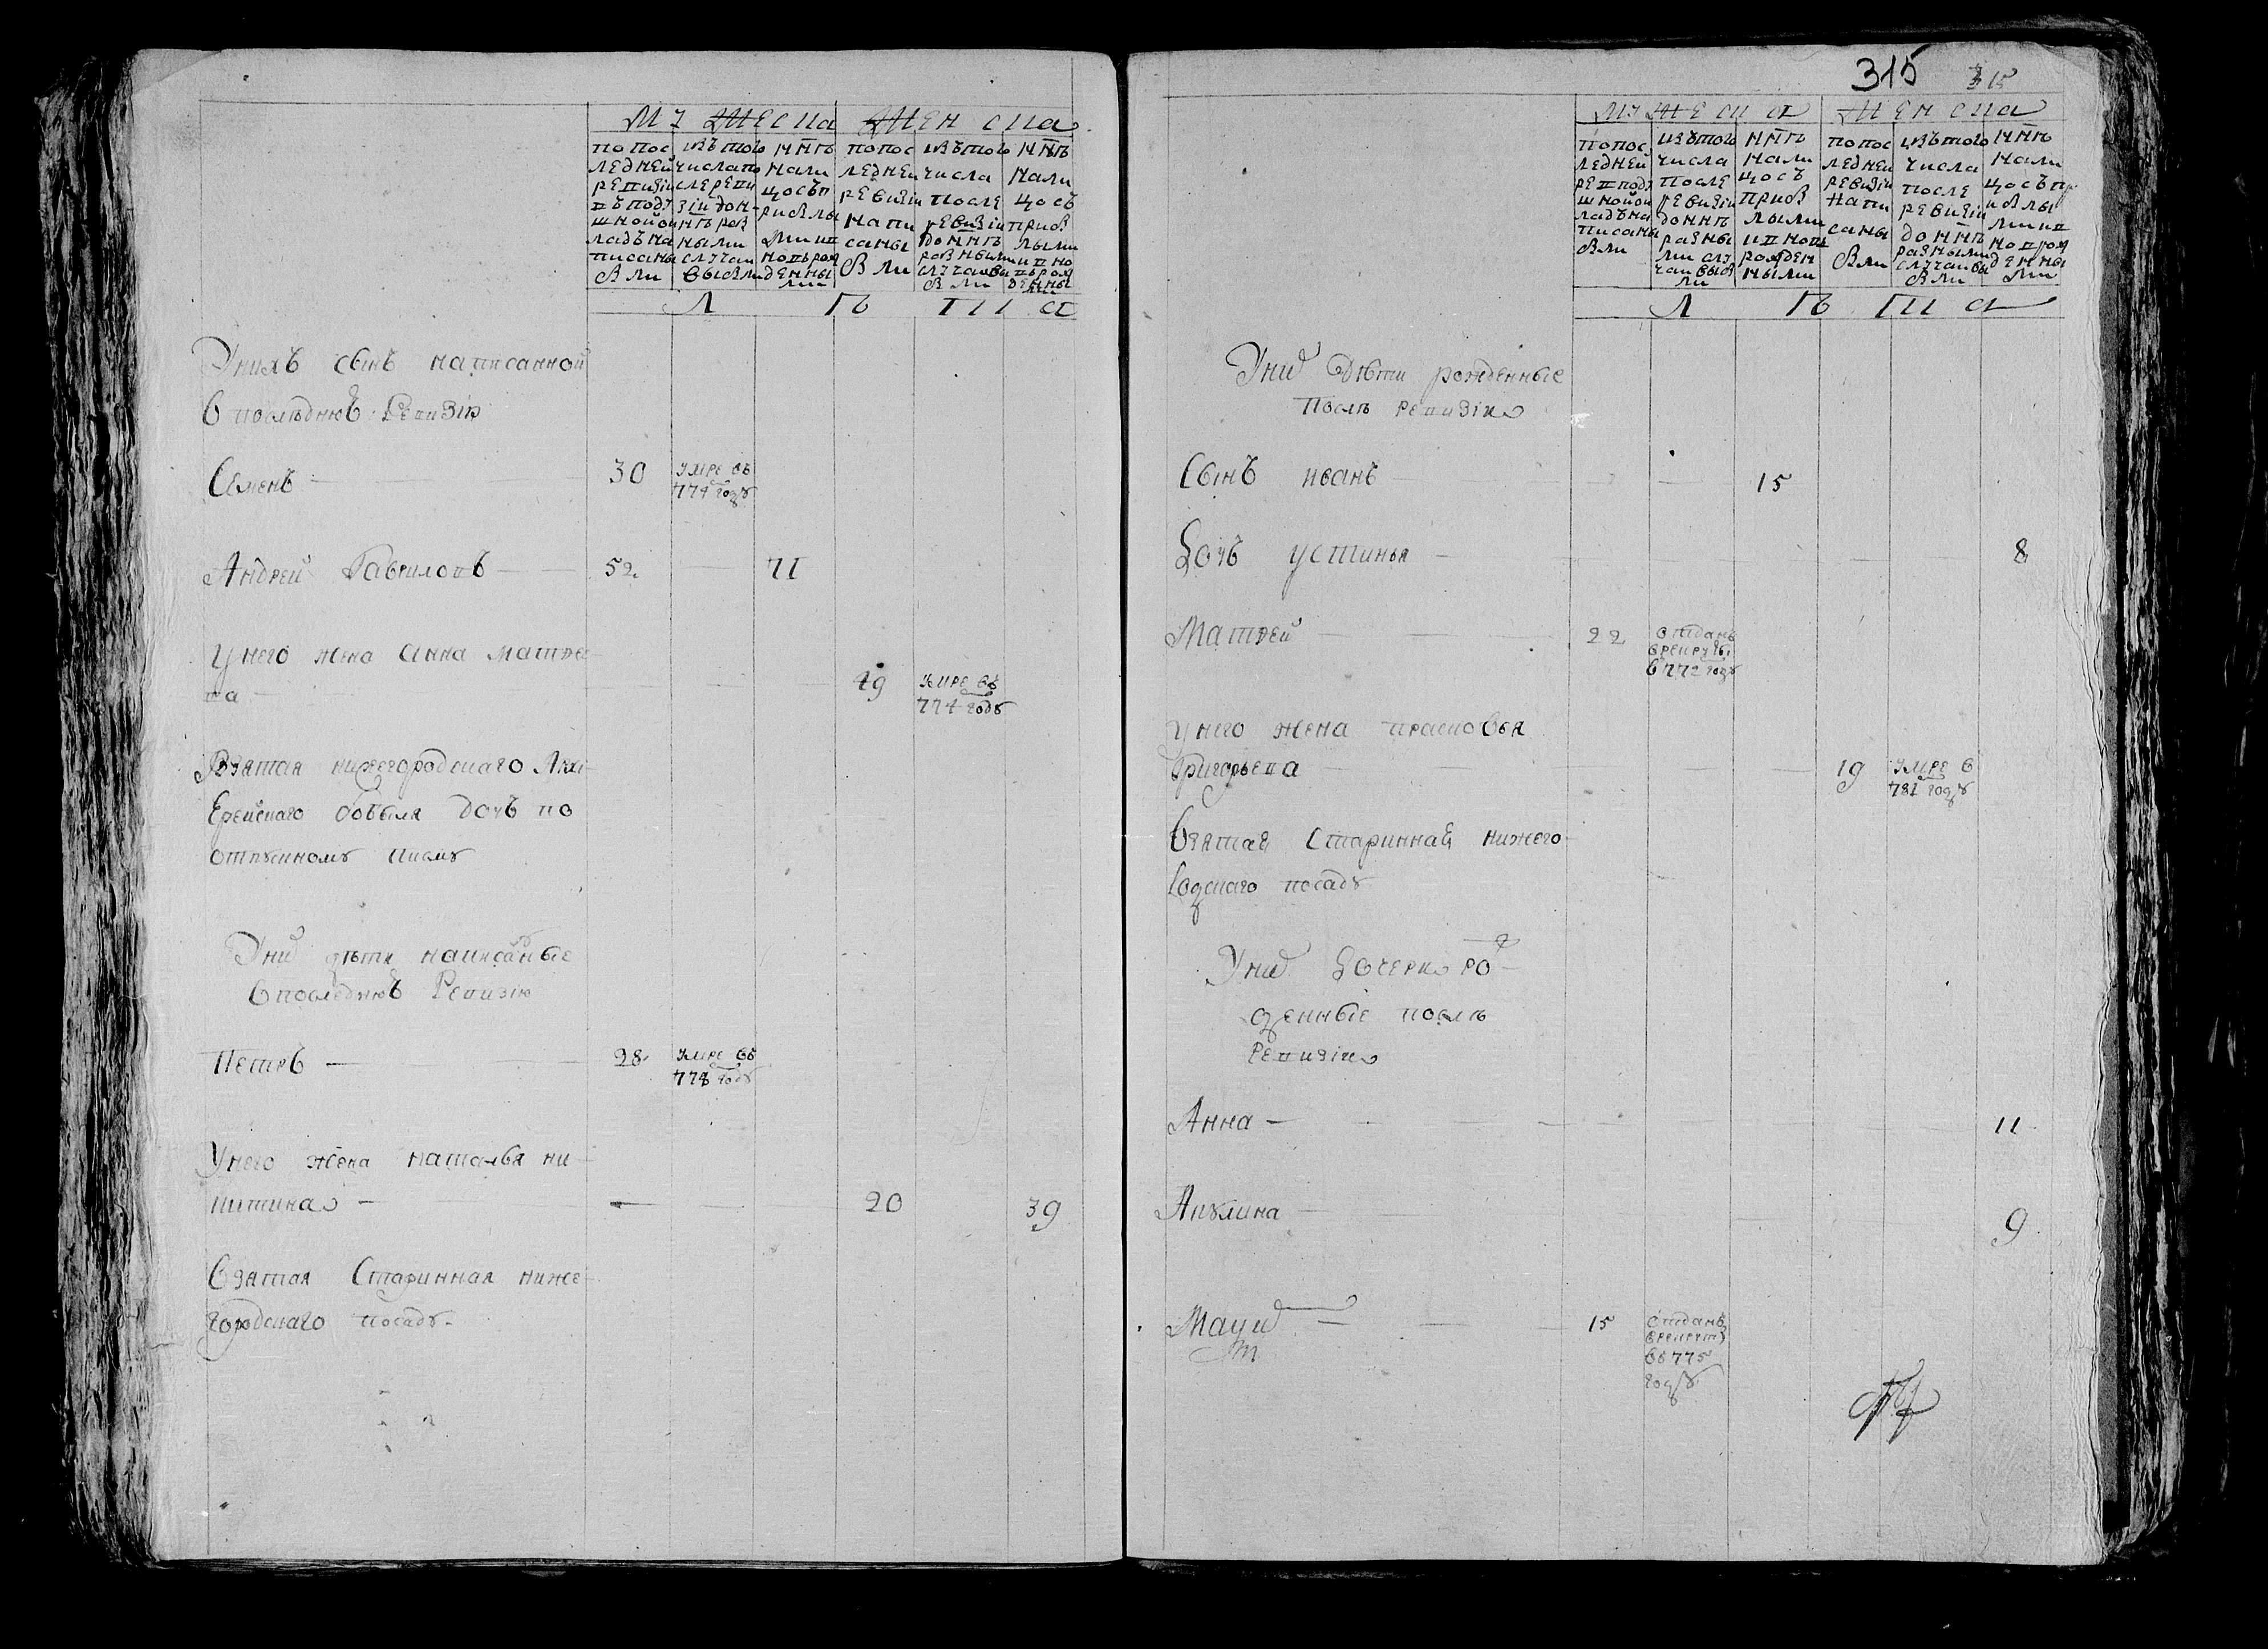 МУЖЕСКА ЖЕНСКА
по пос
ледней
ревизіи
въ поду
шной ок
ладъ на
писаны
были
изъ того
числа по
сле реви
зіи до н
нѣ раз
ными
случаи
выбыли
ннѣ
нали
цо съ п
рибылы
ми и в
новь рож
денны
ми
по пос
ледней
ревизіи
напи
саны
были
изъ того
числа
после
ревизіи
до ннѣ
разными
случаи вы
были
ннѣ
нали
цо съ
приб
лыми
и вно
вь рож
денны
ми
Л Ѣ Т А
У нихъ сынъ написанной
в последнюю ревизiю
Семенъ 30 умре въ
774 году
Андрей Гавриловъ 52. 71
У него жена Анна Матве
ва 49 умре въ
774 году
Взятая нижегородскаго Архi
ерейскаго бобыля дочь по
отпускному писму
У них дѣти написанные
в последнюю ревизiю
Петръ 28. умре въ
778 году
У него жена Наталья Ни
китина 20 39
Взятая старинная ниже
городскаго посаду
315 315
МУЖЕСКА ЖЕНСКА
по пос
ледней
рев поду
шной ок
ладъ на
писаны
были
изъ того
числа
после
ревизіи
до ннѣ
разны
ми слу
чаи выб
ли
ннѣ
нали
цо съ
приб
лыми
и вновь
рожден
ными
по пос
ледней
ревизіи
напи
саны
были
изъ того
числа
после
ревизіи
до ннѣ
разными
случаи вы
были
ннѣ
нали
цо съ пр
ибылы
ми и в
новь рож
денны
ми
Л Ѣ Т А
У них дѣти рожденные
послѣ ревизiи
Сынъ Иванъ 15
Дочь Устинья 8
Матвей 22 отданъ
в рекруты
в 772 году
У него жена Прасковья
Григорьева 19 умре в
781 году
Взятая старинная нижего
родскаго посаду
У них дочери рож
денные послѣ
ревизiи
Анна 11
Акулина 9
15 отданъ
в рекруты
въ 775
году